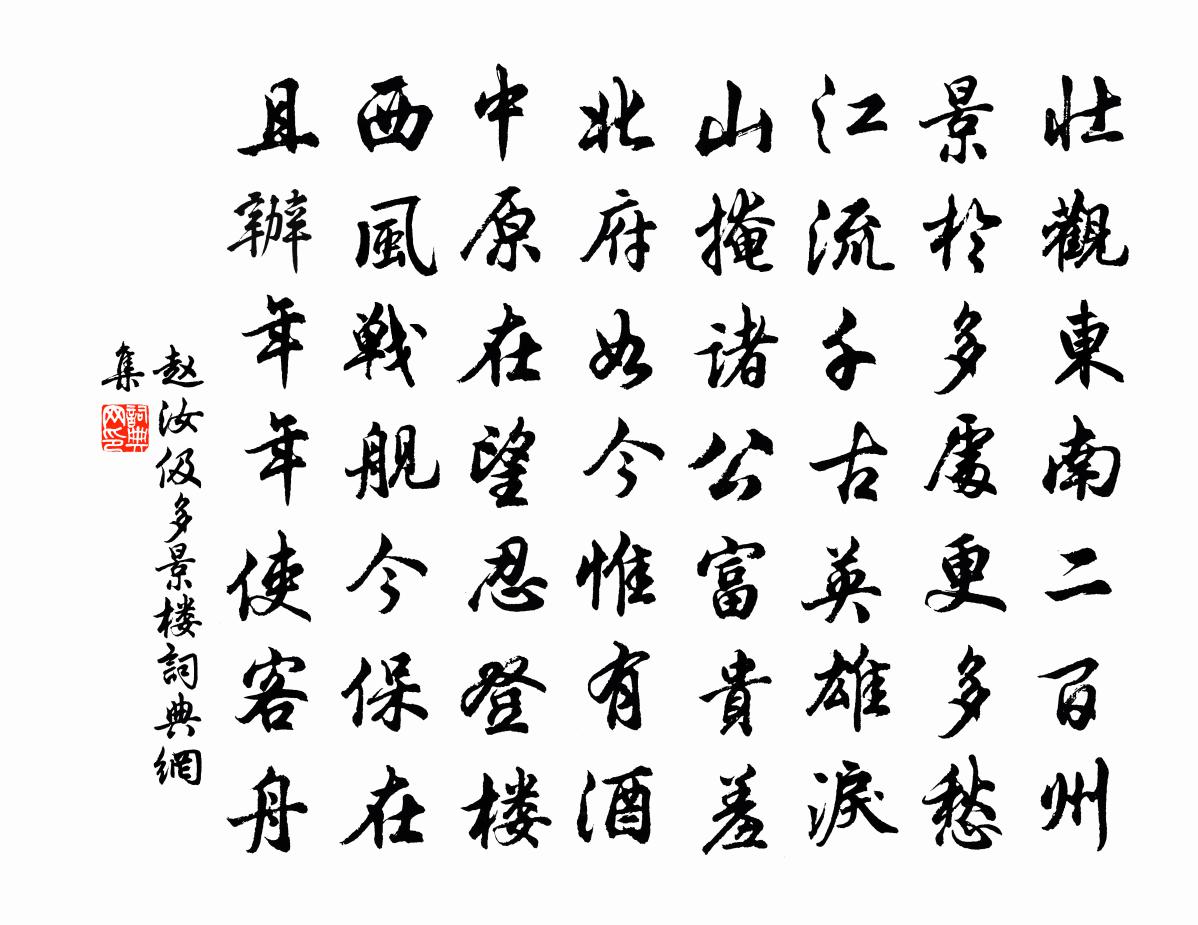 壮觀東南二百州
景於多處更多愁
江流千古英雄淚
山掩諸公富貴羞
北府如今惟有酒
中原在望忍登楼
西風戦舰今保在
且辦年年使客舟
赵汝伋多景楼詞典網
集
詞典
网印